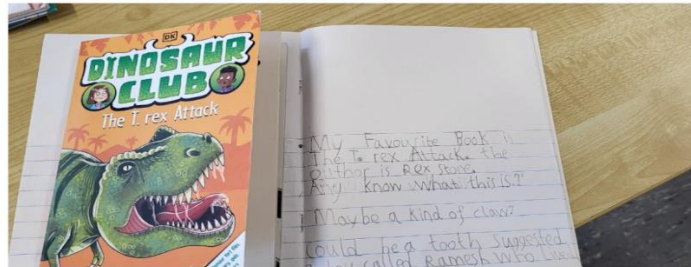 DK
DINOSAUR
CLUB
The T. rex Attack
My Favourite Book is
The T. rex Attack. the
author is Rex stone.
Any know what this is?
Maybe a kind of claw?
Could be a tooth suggested
a boy called Ramesh who